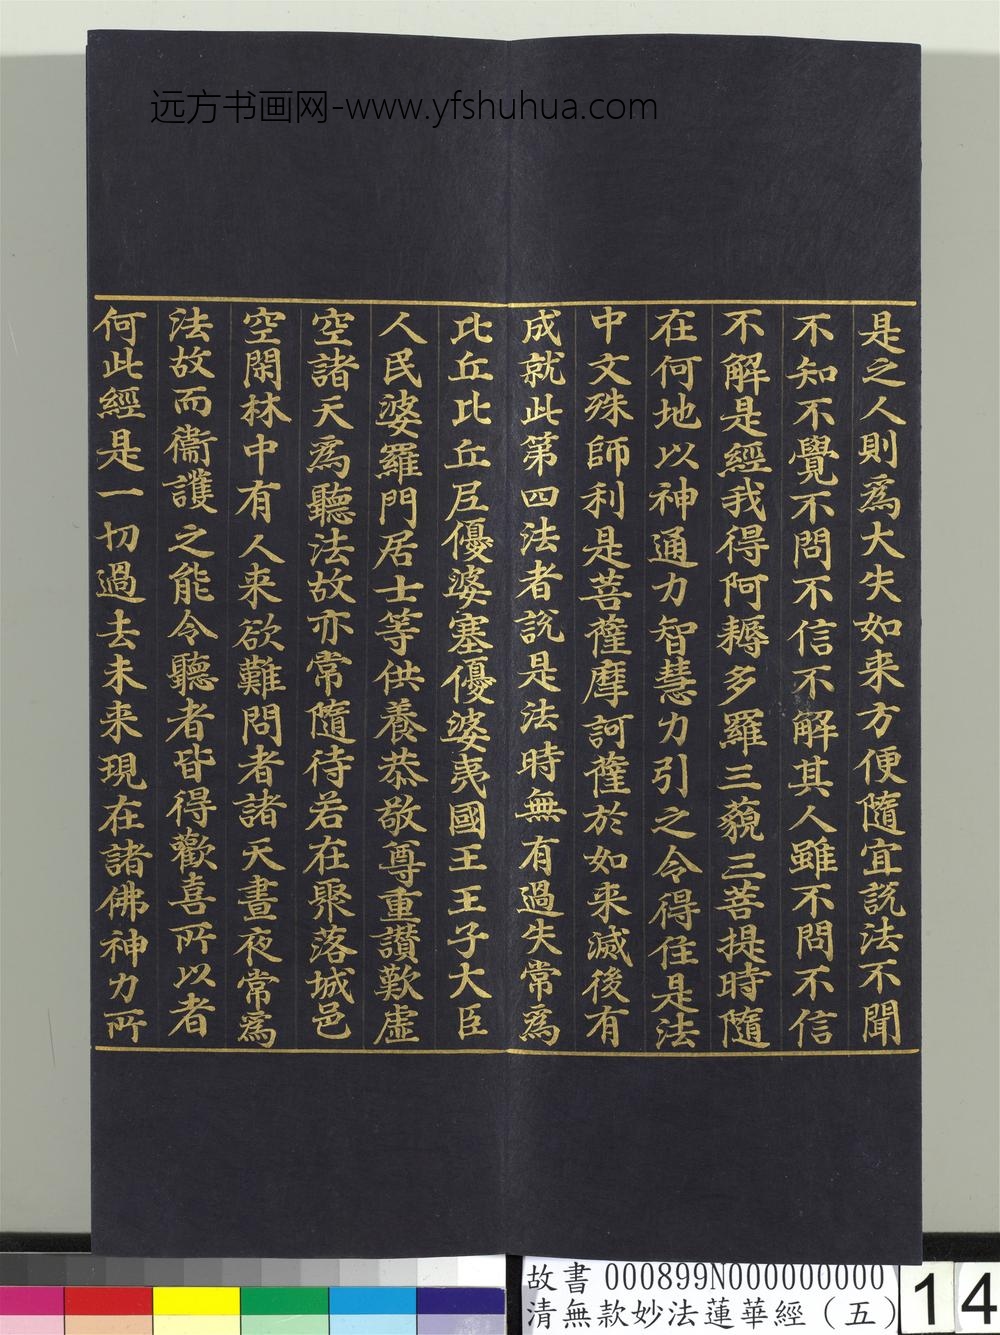 远方书画网-www.yfshuhua.com
是之人則爲大失如来方便隨宜說法不聞
不知不覺不問不信不解其人雖不問不信
不解是經我得阿耨多羅三藐三菩提時隨
在何地以神通力智慧力引之令得住是法
中文殊師利是菩薩摩訶薩於如来滅後有
成就此第四法者說是法時無有過失常爲
比丘比丘尼優婆塞優婆夷國王王子大臣
人民婆羅門居士等供養恭敬尊重讃歎虛
空諸天爲聽法故亦常隨待若在聚落城邑
空閑林中有人来欲難問者諸天晝夜常爲
法故而衞護之能令聽者皆得歡喜所以者
何此經是一切過去未来現在諸佛神力所
故書 000899N000000000
清無款妙法蓮華經（五）
14